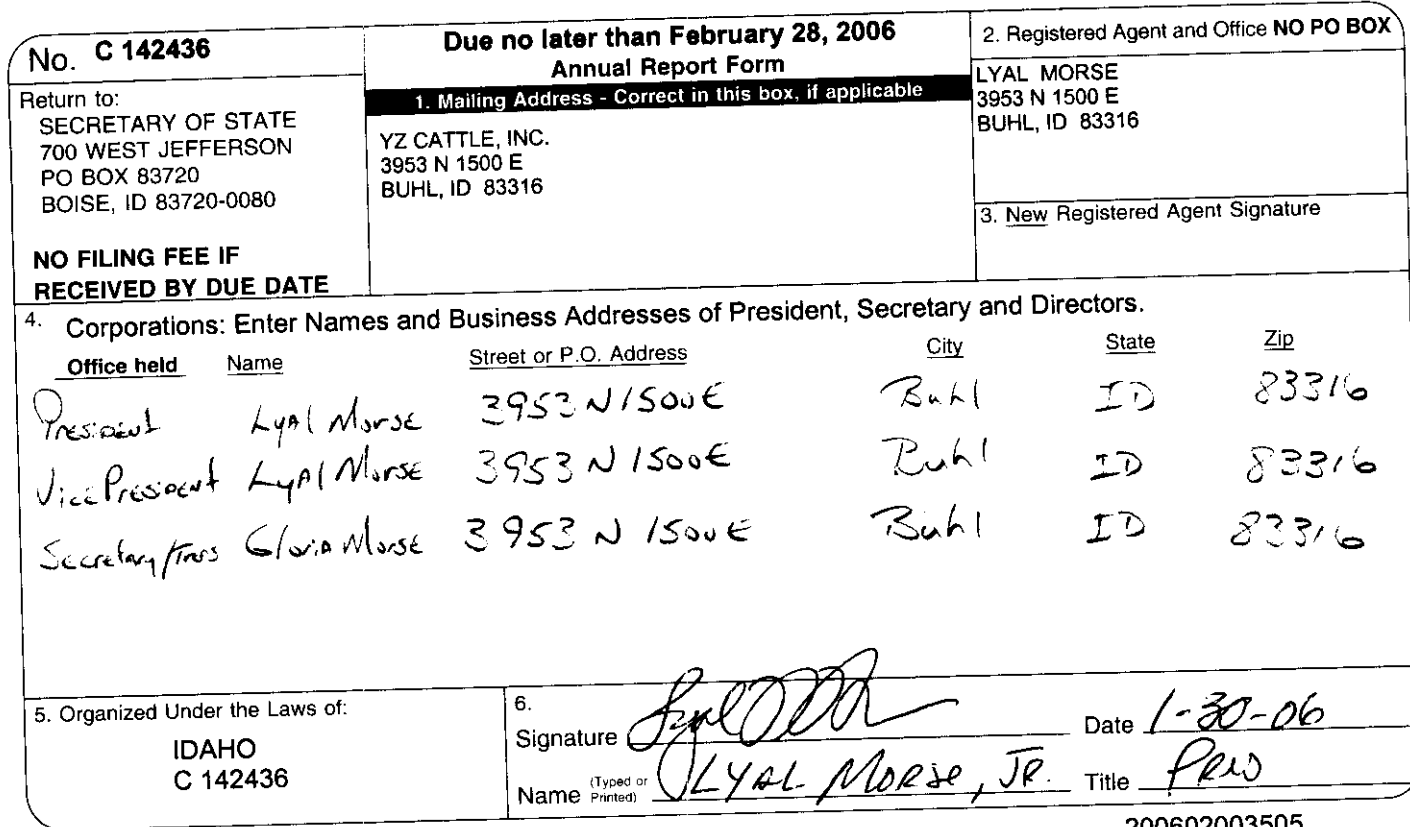 No. C 142436
Return to:
SECRETARY OF STATE
700 WEST JEFFERSON
PO BOX 83720
BOISE, ID 83720-0080
NO FILING FEE IF
RECEIVED BY DUE DATE
Due no later than February 28, 2006
Annual Report Form
1. Mailing Address - Correct in this box, if applicable
YZ CATTLE, INC.
3953 N 1500 E
BUHL, ID 83316
2. Registered Agent and Office NO PO BOX
LYAL MORSE
3953 N 1500 E
BUHL, ID 83316
3. New Registered Agent Signature
4. Corporations: Enter Names and Business Addresses of President, Secretary and Directors.
Office held Name Street or P.O. Address City State Zip
President Lyal Morse 3953 N 1500 E Buhl ID 83316
Vice President Lyal Morse 3953 N 1500 E Buhl ID 83316
Secretary/Tres Gloria Morse 3953 N 1500 E Buhl ID 83316
5. Organized Under the Laws of:
IDAHO
C 142436
6.
Signature Date 1-30-06
Name (Typed or Printed) LYAL MORSE, JR. Title Pres
200602003505